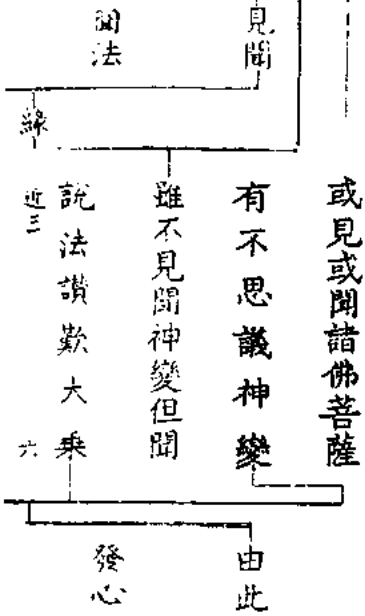 見聞
聞法
緣
或見或聞諸佛菩薩
有不思議神變
雖不見聞神變但聞
說法讚歎大乘
近三
六
由此
發心